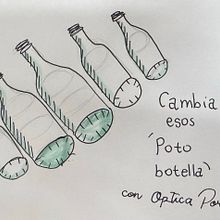 Cambia
esos
'Poto
botella'
con Optica